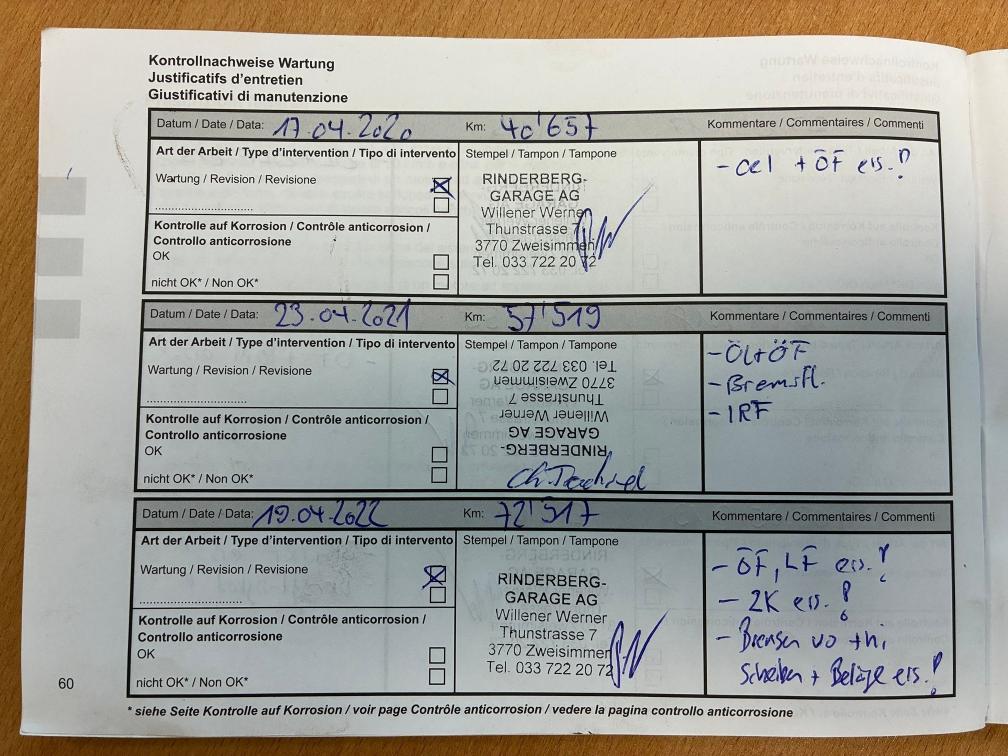 Kontrollnachweise Wartung
Justificatifs d'entretien
Giustificativi di manutenzione
Datum / Date / Data: 17.04.2020 Km: 40'657 Kommentare / Commentaires / Commenti
Art der Arbeit / Type d'intervention / Tipo di intervento Stempel / Tampon / Tampone
Wartung / Revision / Revisione
Kontrolle auf Korrosion / Contrôle anticorrosion /
Controllo anticorrosione
OK
nicht OK* / Non OK*
RINDERBERG-
GARAGE AG
Willener Werner
Thunstrasse 7
3770 Zweisimmen
Tel. 033 722 20 72
- Oel + ÖF ers.!
Datum / Date / Data: 23.04.2021 Km: 57'519 Kommentare / Commentaires / Commenti
Art der Arbeit / Type d'intervention / Tipo di intervento Stempel / Tampon / Tampone
Wartung / Revision / Revisione
Kontrolle auf Korrosion / Contrôle anticorrosion /
Controllo anticorrosione
OK
nicht OK* / Non OK*
RINDERBERG-
GARAGE AG
Willener Werner
Thunstrasse 7
3770 Zweisimmen
Tel. 033 722 20 72
- Öl + ÖF
- Bremsfl.
- IRF
Datum / Date / Data: 19.04.2022 Km: 72'517 Kommentare / Commentaires / Commenti
Art der Arbeit / Type d'intervention / Tipo di intervento Stempel / Tampon / Tampone
Wartung / Revision / Revisione
Kontrolle auf Korrosion / Contrôle anticorrosion /
Controllo anticorrosione
OK
nicht OK* / Non OK*
RINDERBERG-
GARAGE AG
Willener Werner
Thunstrasse 7
3770 Zweisimmen
Tel. 033 722 20 72
- ÖF, LF ers.!
- ZK ers.!
- Bremsen vo + hi
Scheiben + Beläge ers.!
60
* siehe Seite Kontrolle auf Korrosion / voir page Contrôle anticorrosion / vedere la pagina controllo anticorrosione